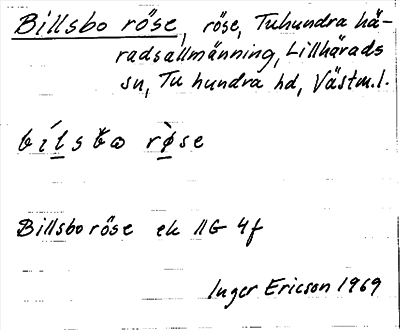 Billsbo röse, röse, Tuhundra hä-
radsallmänning, Lillhärads
sn, Tuhundra hd, Västm.l.
bílsbω rø̀se
Billsbo röse ek 11G 4f
Inger Ericson 1969